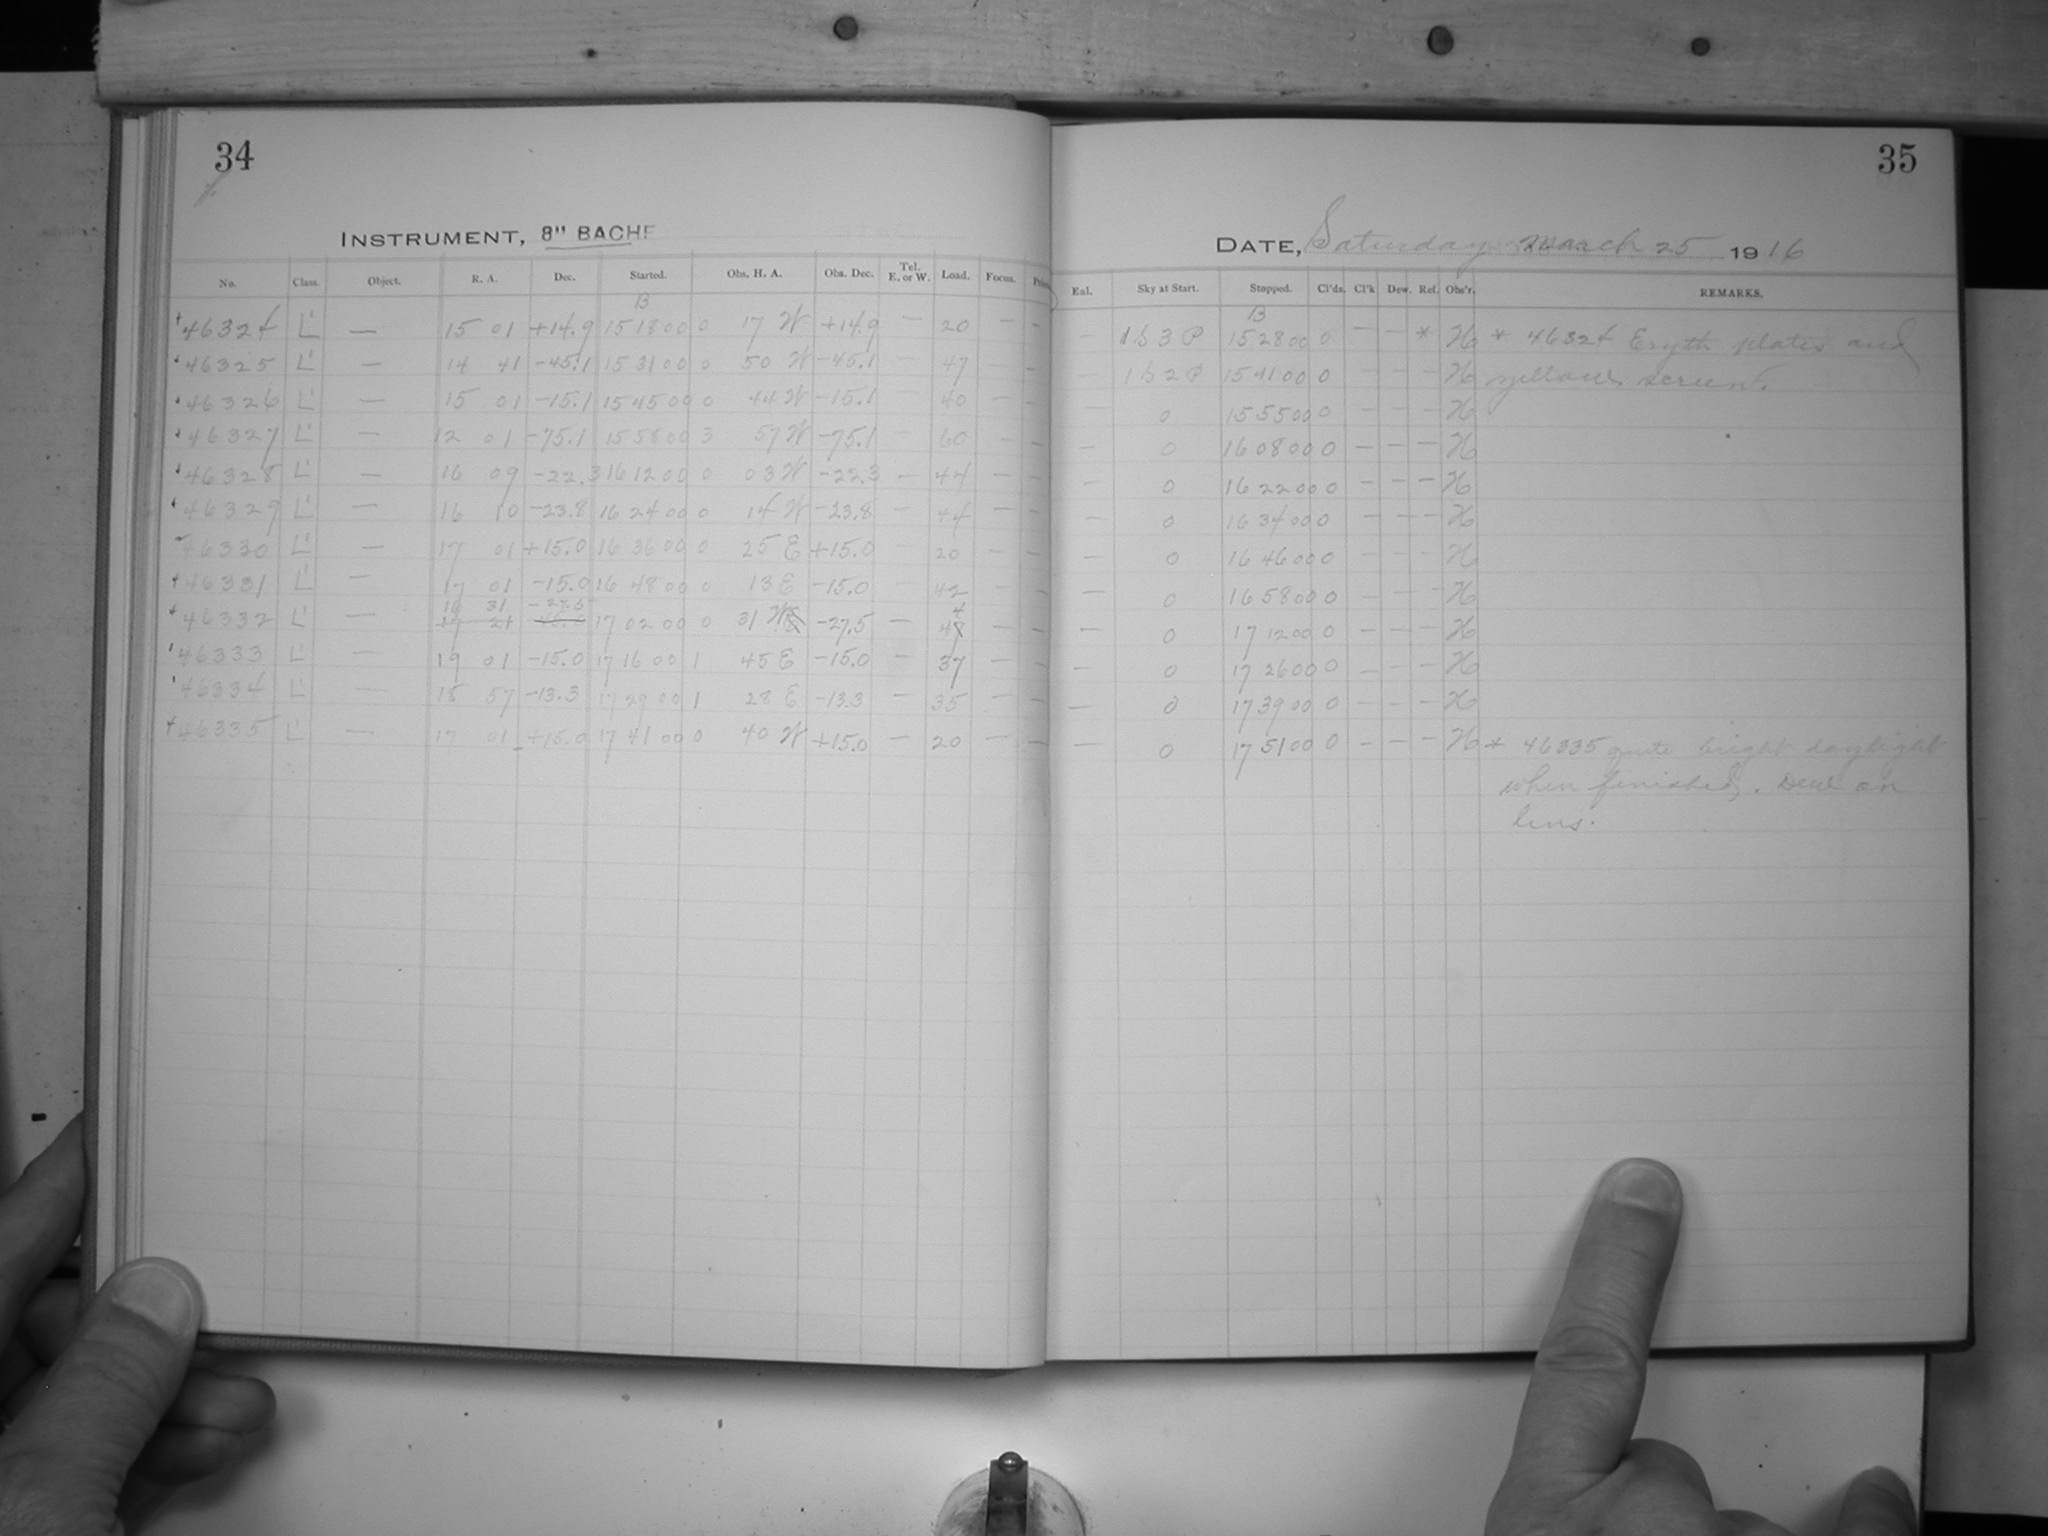 34
35
INSTRUMENT, 8" BACHE
DATE, Saturday March 25 1916
No. Class. Object. R. A. Dec. Started. Obs. H. A. Obs. Dec. Tel. E. or W. Load. Focus. Eal. Sky at Start. Stopped. Cl'ds. Cl'k Dew. Rel. Obs'r. REMARKS.
B B
46324 L' — 15 01 +14.9 15 18 00 0 17 W +14.9 — 20 — — — 1 b 3 P 15 28 00 0 — — * H * 46324 Eryth plates and
46325 L' — 14 41 -45.1 15 31 00 0 50 W -45.1 47 — — — 1 b 2 P 15 41 00 0 — — — H yellow screen.
46326 L' — 15 01 -15.1 15 45 00 0 44 W -15.1 40 — — — 0 15 55 00 0 — — — H
46327 L' — 12 01 -75.1 15 58 00 3 57 W -75.1 60 — — — 0 16 08 00 0 — — — H
46328 L' — 16 09 -22.3 16 12 00 0 03 W -22.3 — 44 — — — 0 16 22 00 0 — — — H
46329 L' — 16 10 -23.8 16 24 00 0 14 W -23.8 — 44 — — — 0 16 34 00 0 — — — H
46330 L' — 17 01 +15.0 16 36 00 0 25 E +15.0 — 20 — — — 0 16 46 00 0 — — — H
46331 L' — 17 01 -15.0 16 48 00 0 13 E -15.0 — 42 — — — 0 16 58 00 0 — — — H
16 31 -27.5 4
46332 L' — 17 02 00 0 31 W -27.5 — 4 — — — 0 17 12 00 0 — — — H
46333 L' — 19 01 -15.0 17 16 00 1 45 E -15.0 — 37 — — — 0 17 26 00 0 — — — H
46334 L' — 18 57 -13.3 17 29 00 1 28 E -13.3 — 35 — — — 0 17 39 00 0 — — — H
46335 L' — 17 01 +15.0 17 41 00 0 40 W +15.0 — 20 — — — 0 17 51 00 0 — — — H * 46335 quite bright daylight
when finished. Dew on
lens.